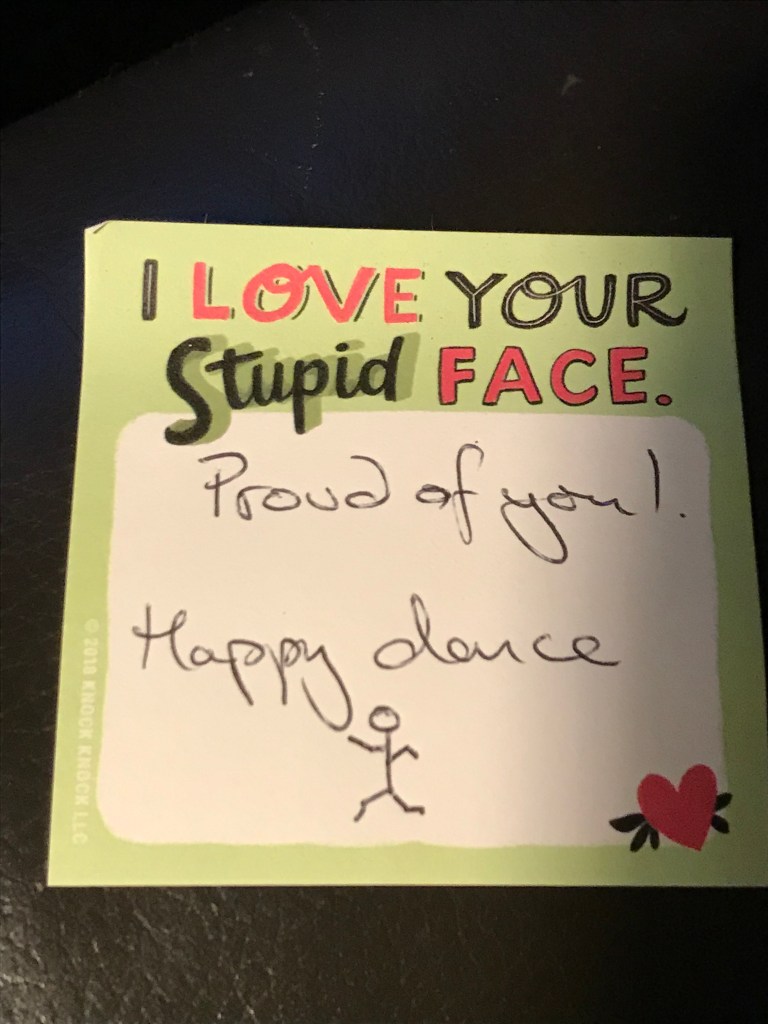 I LOVE YOUR
Stupid FACE.
Proud of you!.
Happy dance
© 2018 KNOCK KNOCK LLC